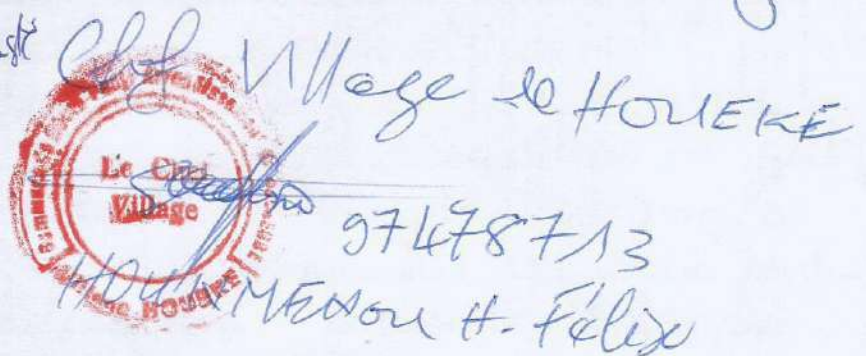 Chef Village de HOUEKE
Le Chef
Village
97478713
HOUNMENOU H. Félix
HOUEKE